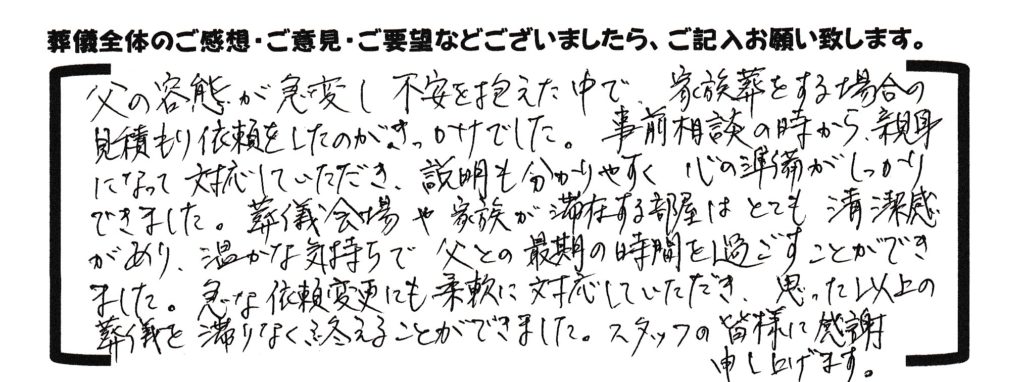 葬儀全体のご感想・ご意見・ご要望などございましたら、ご記入お願い致します。
父の容態が急変し不安を抱えた中で、家族葬をする場合の
見積もり依頼をしたのがきっかけでした。事前相談の時から、親身
になって対応していただき、説明も分かりやすく心の準備がしっかり
できました。葬儀会場や家族が滞在する部屋はとても清潔感
があり、温かな気持ちで父との最期の時間を過ごすことができ
ました。急な依頼変更にも柔軟に対応していただき、思った以上の
葬儀を滞りなく終えることができました。スタッフの皆様に感謝
申し上げます。